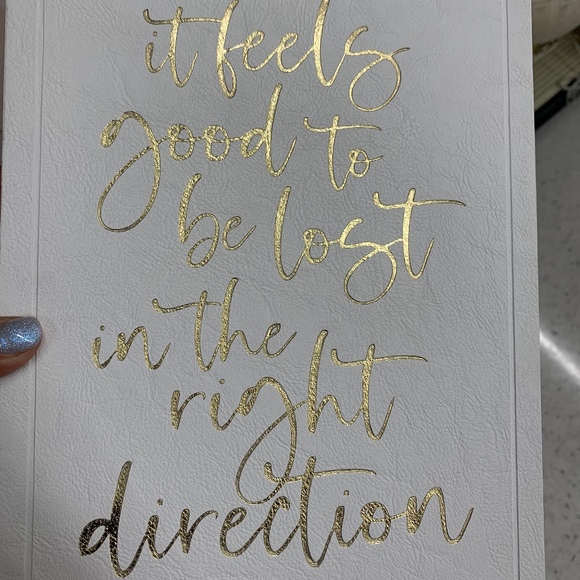 it feels
good to
be lost
in the
right
direction